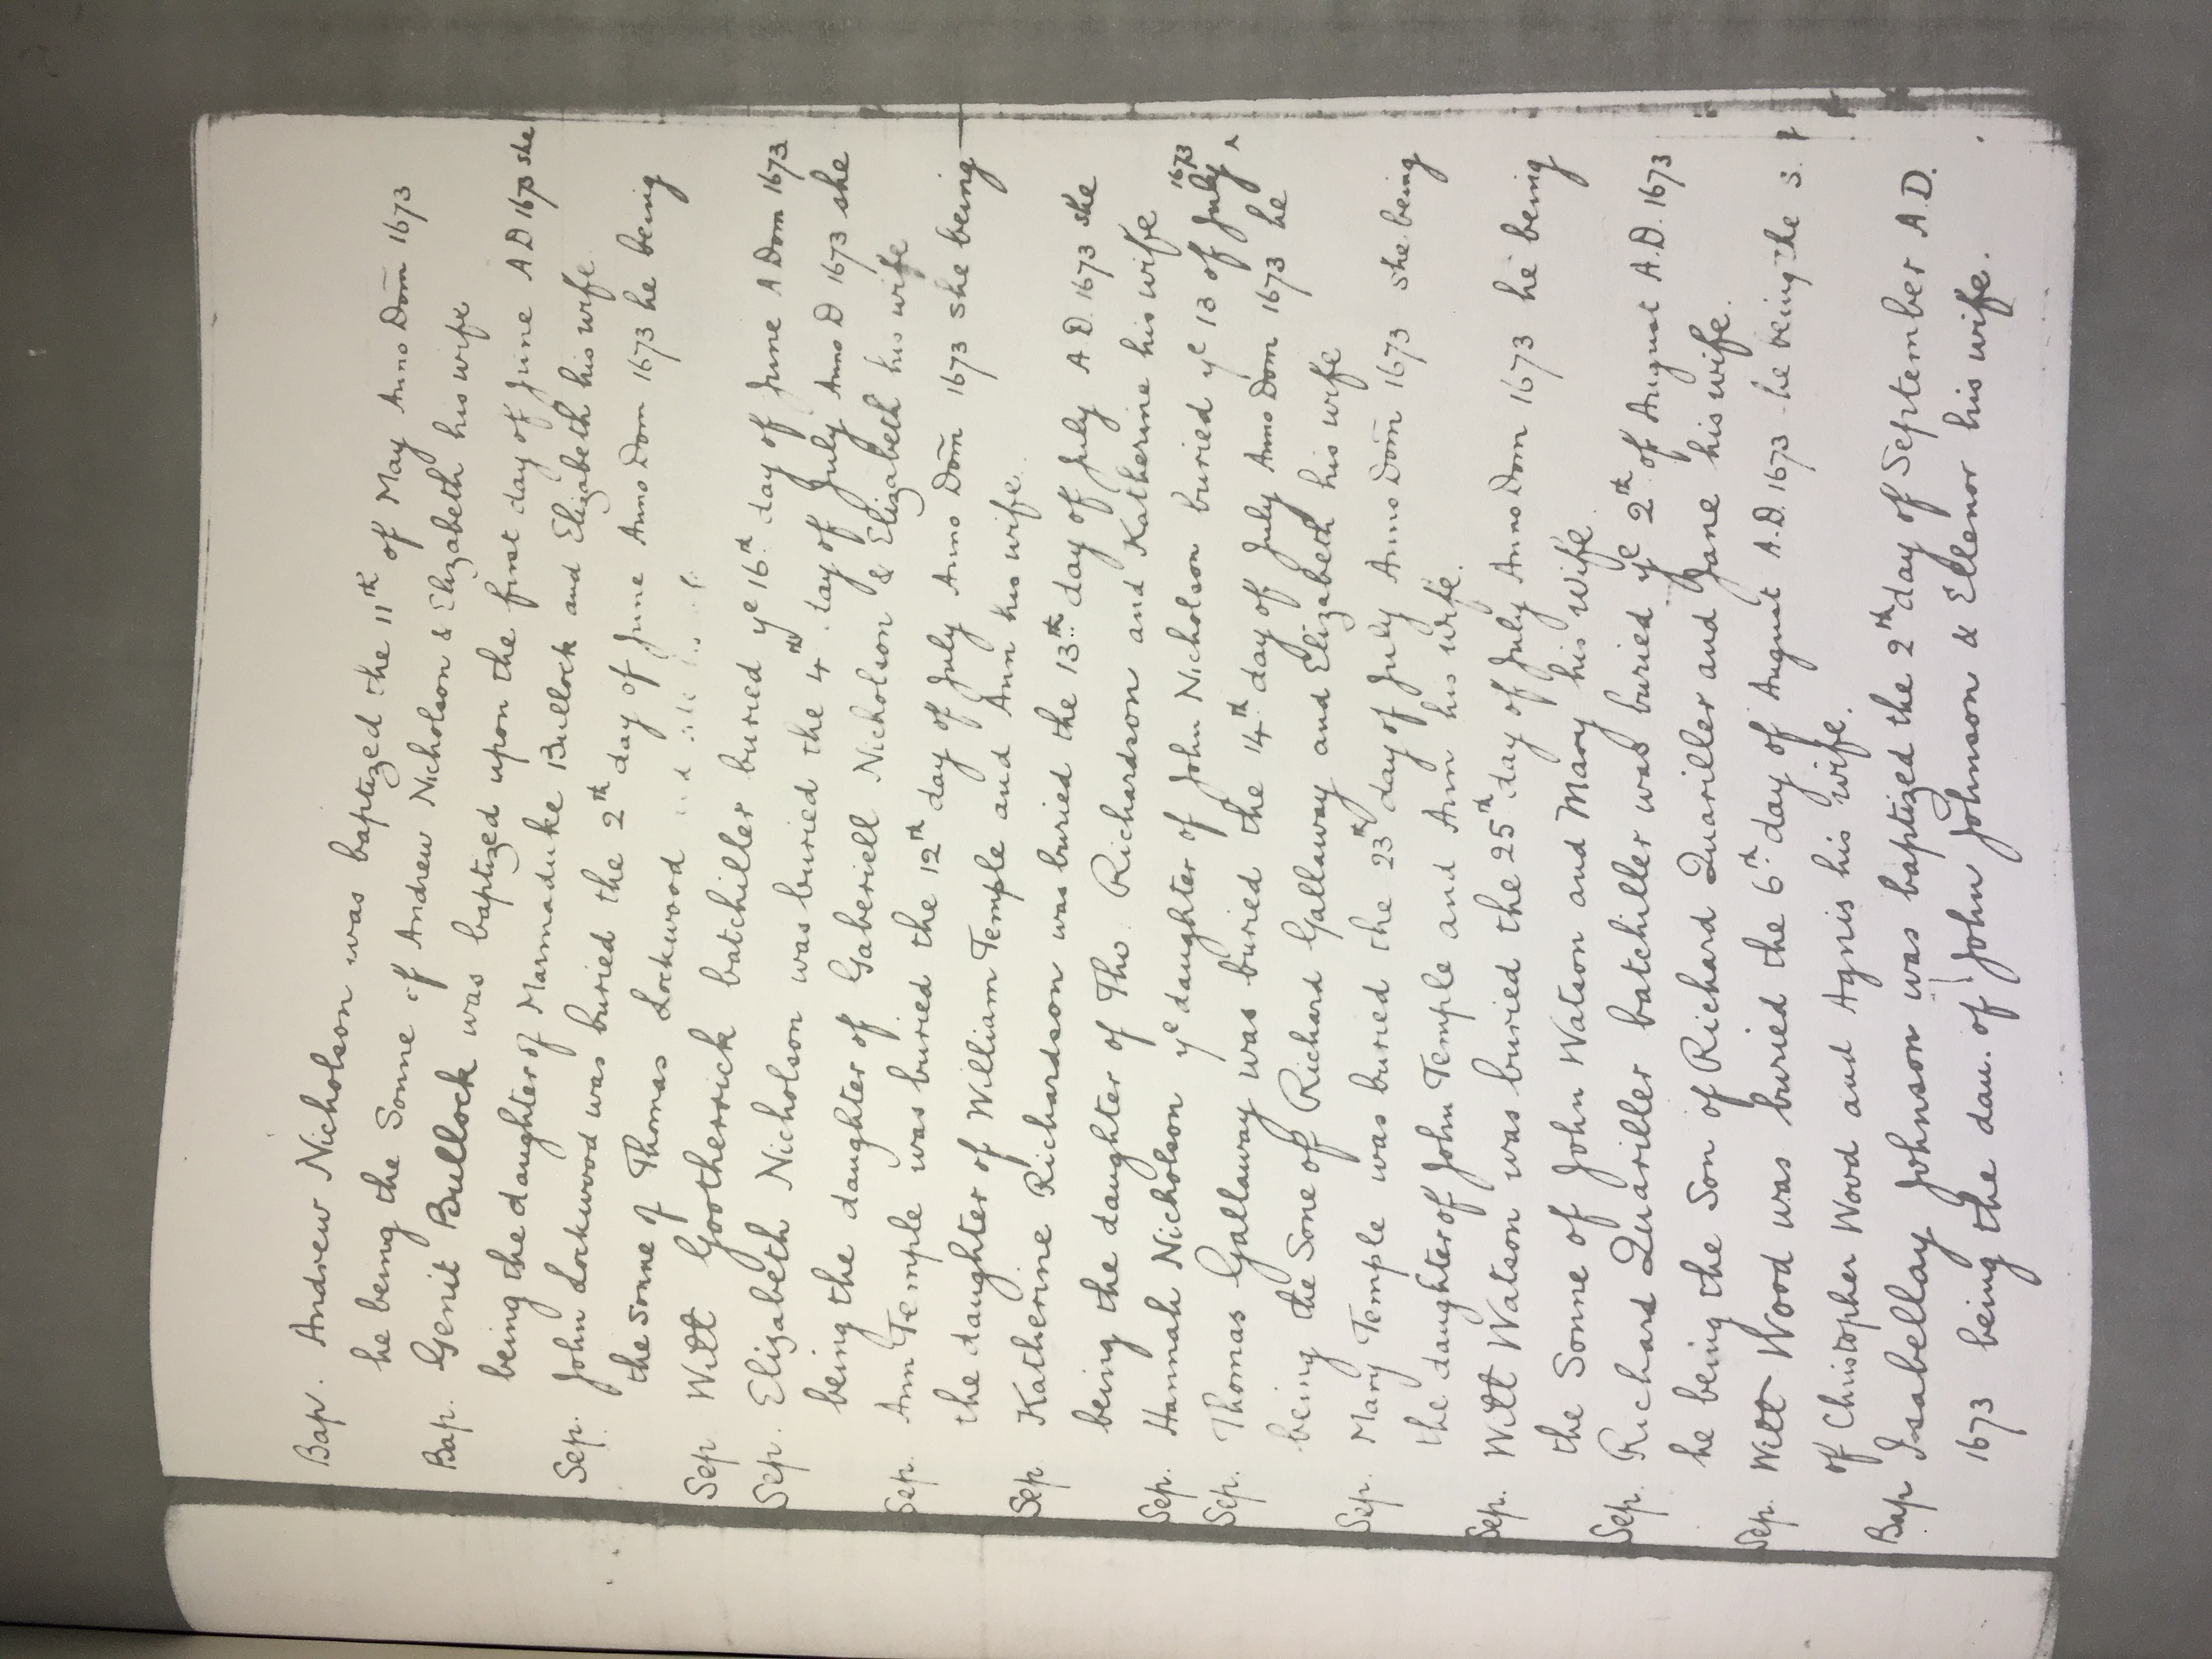 Bap. Andrew Nicholson was baptized the 11th of May Anno Dom 1673
he being the Sonne of Andrew Nicholson & Elizabeth his wife
Bap. Genit Bullock was baptized upon the first day of June A D 1673 she
being the daughter of Marmaduke Bullock and Elizabeth his wife
Sep. John Lockwood was buried the 2th day of June Anno Dom 1673 he being
the sonne of Thomas Lockwood
Sep Willt Gootherrick batchiller buried ye 16th day of June A Dom 1673
Sep. Elizabeth Nicholson was buried the 4th day of July Anno D 1673 she
being the daughter of Gaberiell Nicholson & Elizabeth his wife
Sep. Ann Temple was buried the 12th day of July Anno Dom 1673 she being
the daughter of William Temple and Ann his wife.
Sep. Katherine Richardson was buried the 13th day of July A D. 1673 she
being the daughter of Tho. Richardson and Katherine his wife
Sep. Hannah Nicholson ye daughter of John Nicholson buried ye 13 of July 1673
Sep. Thomas Gallaway was buried the 14th day of July Anno Dom 1673 he
being the Sone of Richard Gallaway and Elizabeth his wife
Sep. Mary Temple was buried the 23th day of July Anno Dom 1673 she being
the daughter of John Temple and Ann his wife.
Sep. Willt Watson was buried the 25th day of July Anno Dom 1673 he being
the Sonne of John Watson and Mary his Wife.
Sep. Richard Quariller batchiller was buried ye 2th of August A.D. 1673
he being the Son of Richard Quariller and Jane his wife.
Sep. Willt Wood was buried the 6th day of August A.D. 1673 he being the S.
of Christopher Wood and Agnis his wife.
Bap Isabellay Johnson was baptized the 2th day of September A.D.
1673 being the dau. of John Johnson & Ellenor his wife.